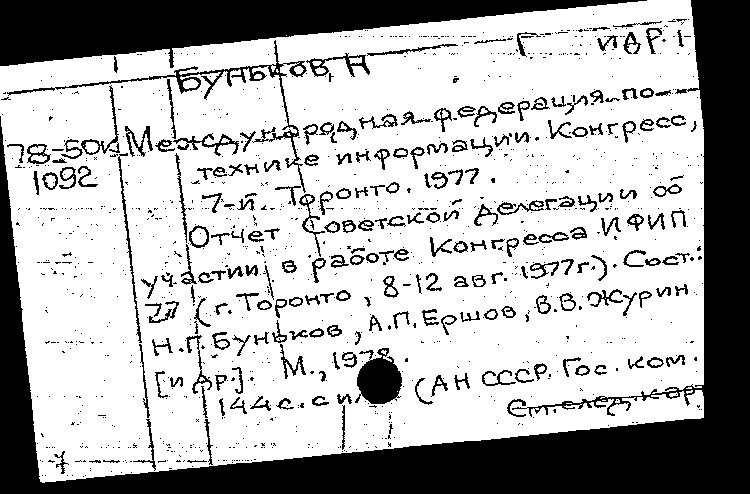 и др. 1
Буньков, Н
78-50к Международная федерация по
1092 технике информации. Конгресс,
7-й. Торонто. 1977.
Отчет Советской делегации об
участии в работе Конгресса ИФИП
77 (г. Торонто, 8-12 авг. 1977г.). Сост.:
Н.Г. Буньков, А.П. Ершов, В.В. Журин
[и др.]. М., 1978.
144 с. с (АН СССР. Гос. ком.
См. след. карт